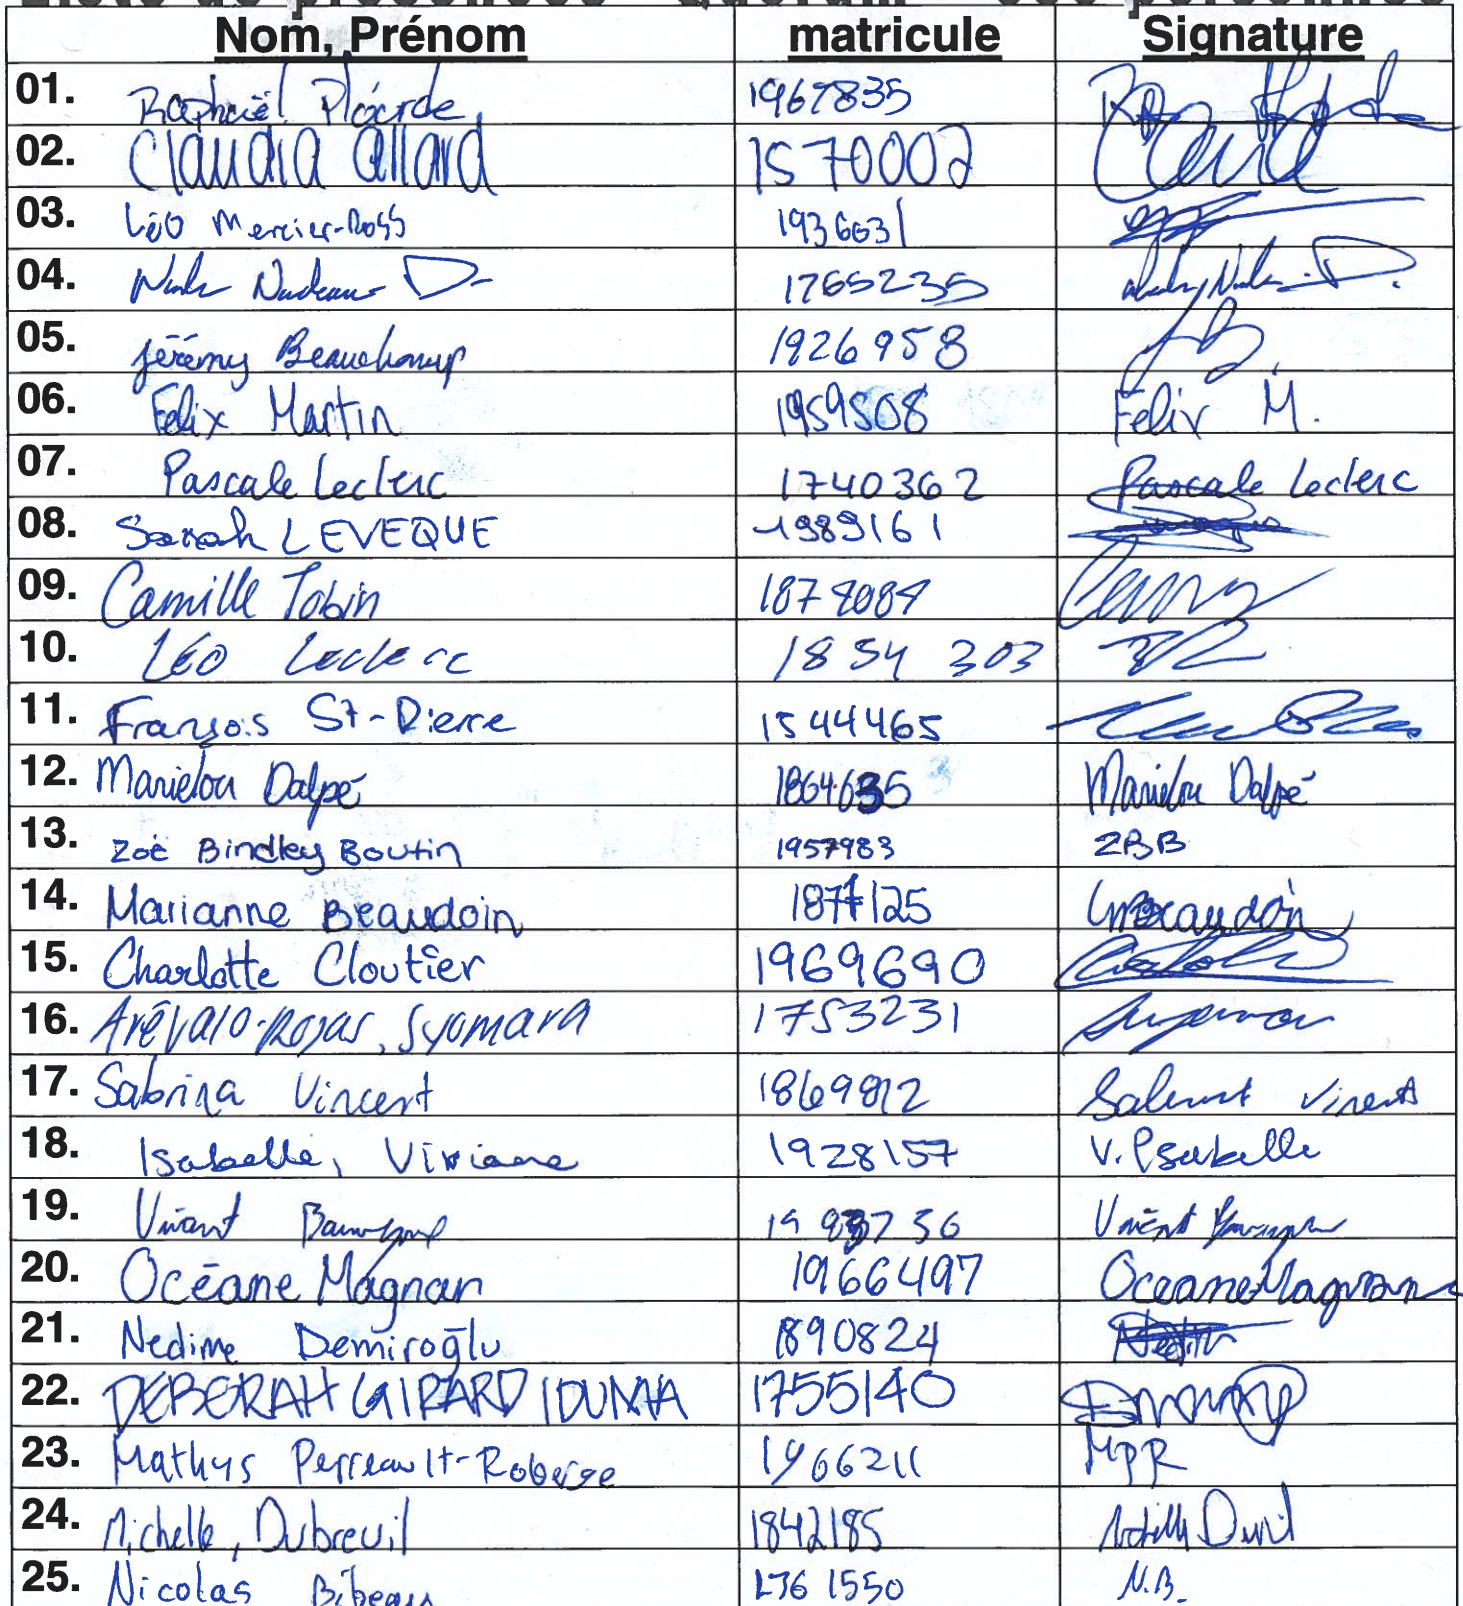 Nom, Prénom matricule Signature
01. Raphaël Plourde 1967835
02. Claudia Allard 1570002
03. Léo Mercier-Ross 1936631
04. Nadeau D- 1765235
05. Jérémy Beauchamp 1926958
06. Félix Martin 1959508 Félix M.
07. Pascale Leclerc 1740362 Pascale Leclerc
08. Sarah LEVEQUE 1989161
09. Camille Tobin
10. Léo Leclerc 1854 303
11. François St-Pierre 1544465
12. Marielou Dalpé 1864635 Marielou Dalpé
13. Zoë Bindley Boutin 1957983 ZBB
14. Marianne Beaudoin 1877125 Beaudoin
15. Charlotte Cloutier 1969690
16. Arévalo-Rojas, Syomara 1753231
17. Sabrina Vincent 1869812 Vincent
18. Isabelle, Viviane 1928157 V. Isabelle
19. Vincent Vincent
20. Océane Magnan 1966497 Océane Magnan
21. Nedime Demiroğlu 1890824
22. DEBERAH GIRARD IDUMA 1755140
23. Mathys Perreault-Roberge 1966211 MPR
24. Michelle, Dubreuil 1842185
25. Nicolas Bibeau 1761550 N.B.